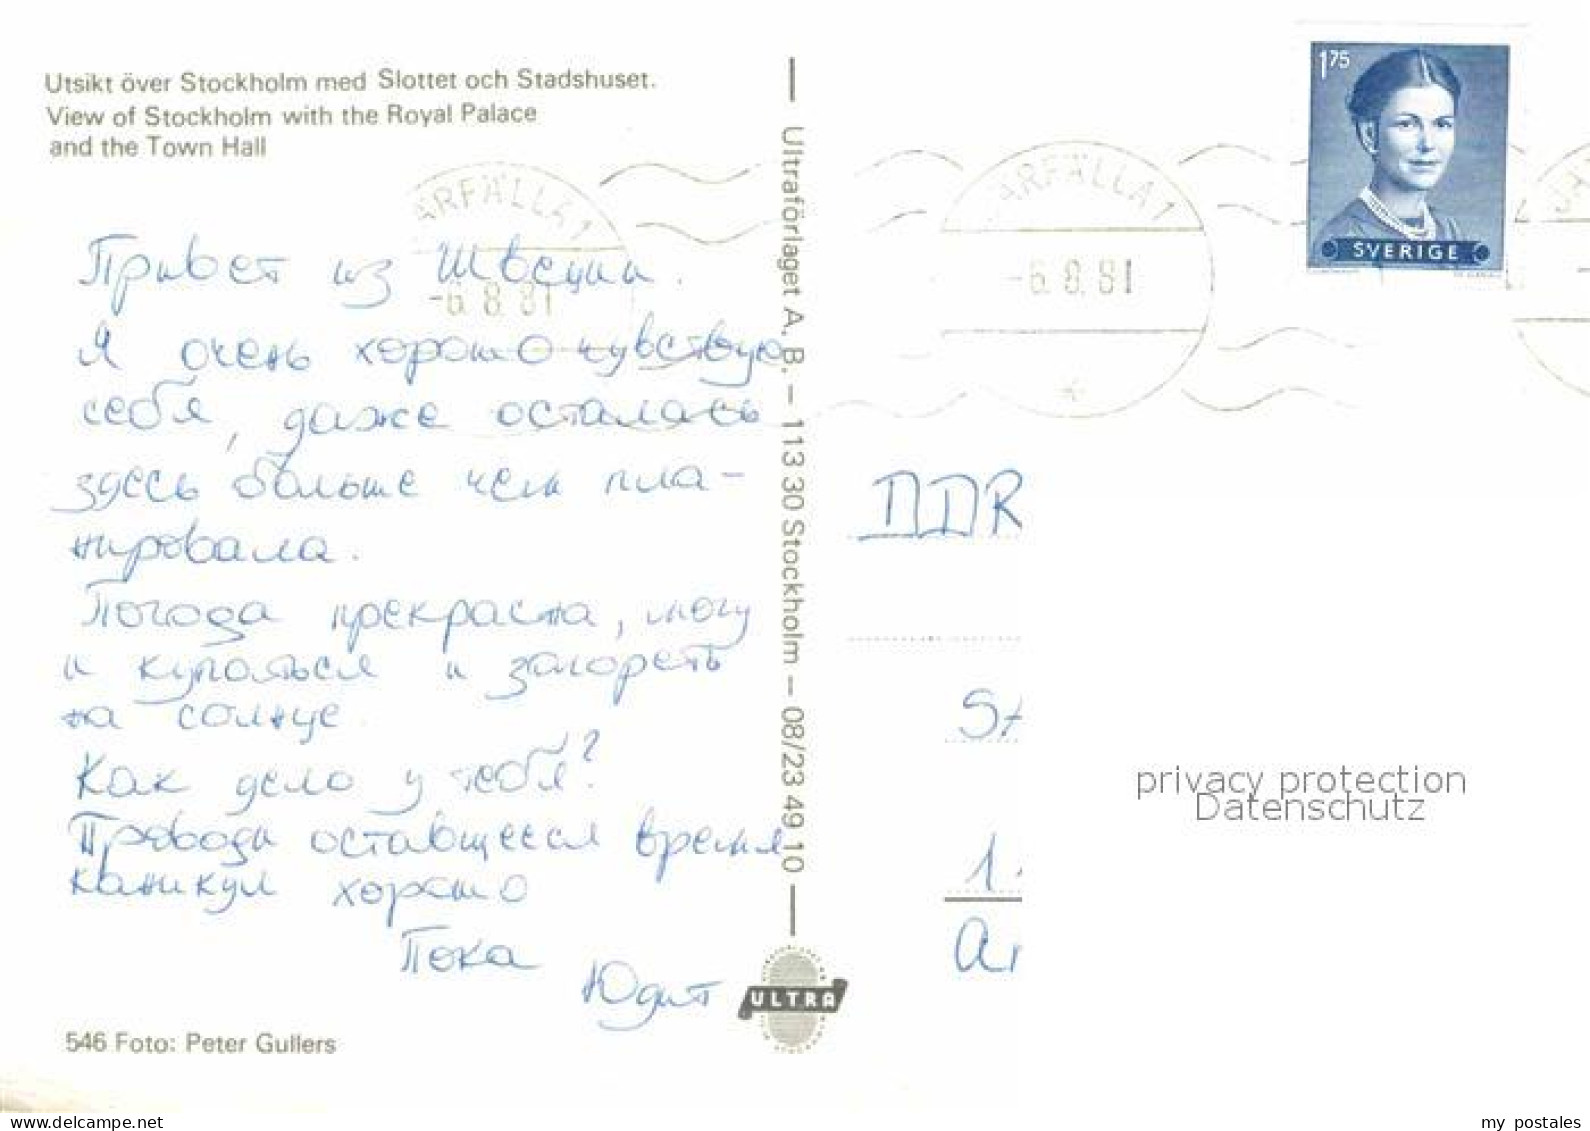 Utsikt över Stockholm med Slottet och Stadshuset.
View of Stockholm with the Royal Palace
and the Town Hall
ARFÄLLA 1
-6.8.81
Привет из Швеции.
Я очень хорошо чувствую
себя, даже осталась
здесь больше чем пла-
нировала.
Погода прекрасна, могу
и купаться и загореть
на солнце.
Как дело у тебя?
Проводи оставщееся время
каникул хорошо
Пока
Юдит
546 Foto: Peter Gullers
Ultraförlaget A. B. — 113 30 Stockholm — 08/23 49 10
ULTRA
ARFÄLLA 1
-6.8.81
JÄ
175
SVERIGE
DDR
SA
1
privacy protection
Datenschutz
my postales
www.delcampe.net